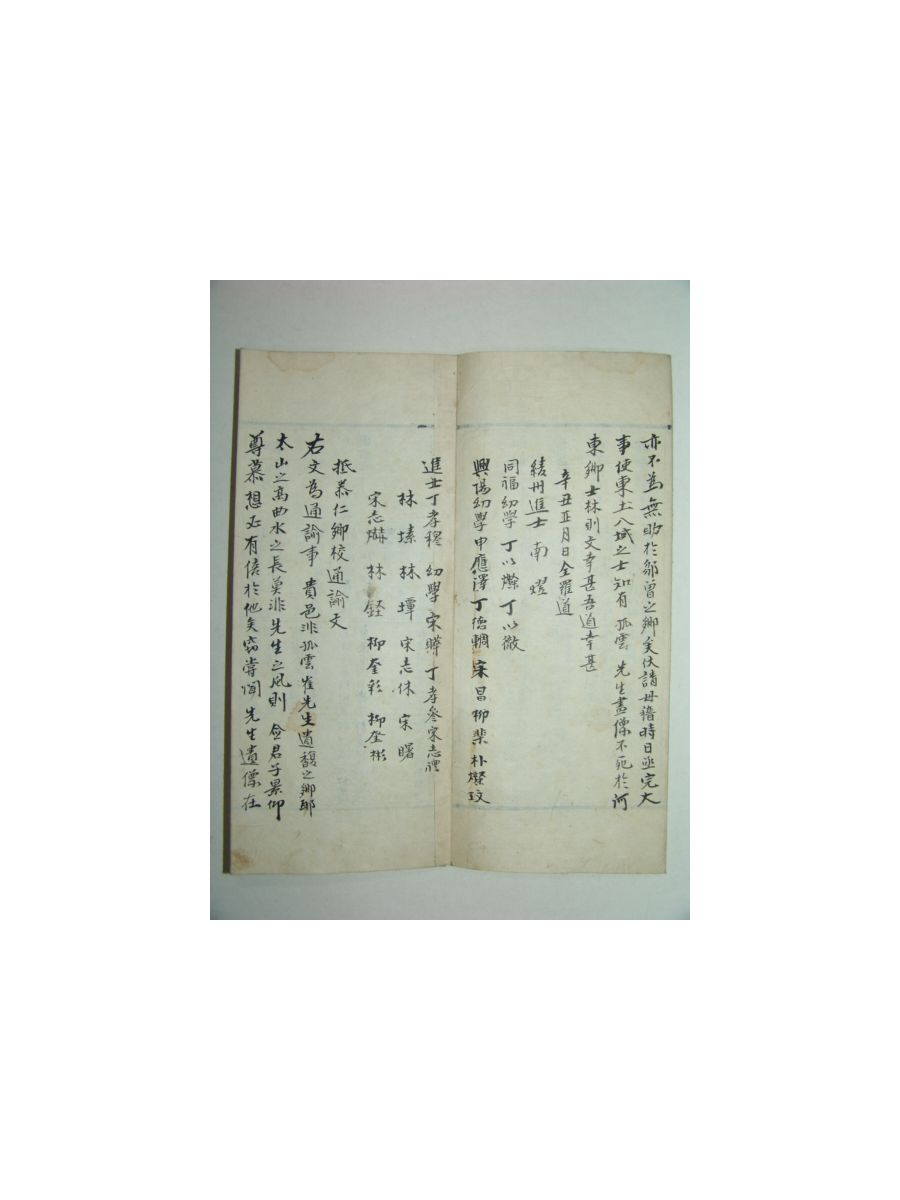 亦不爲無助於鄒曾之鄉矣伏請毋稽時日亟完大
事使東土八域之士知有 孤雲 先生畫像不死於河
東鄉士林則文幸甚吾道幸甚
辛丑正月日全羅道
綾州進士 南 熤
同福幼學 丁以爃 丁以徽
興陽幼學 申應澤 丁德輖 宋昌 柳棐 朴燦玟
進士丁孝穆 幼學 宋 丁孝參 宋志禮
林塐 林墰 宋志休 宋曙
宋志爀 林 柳奎彩 柳奎彬
抵泰仁鄉校通諭文
右文爲通諭事 貴邑非孤雲崔先生遺馥之鄉耶
太山之高曲水之長莫非先生之風則 僉君子景仰
尊慕想必有倍於他矣窃嘗聞 先生遺像在